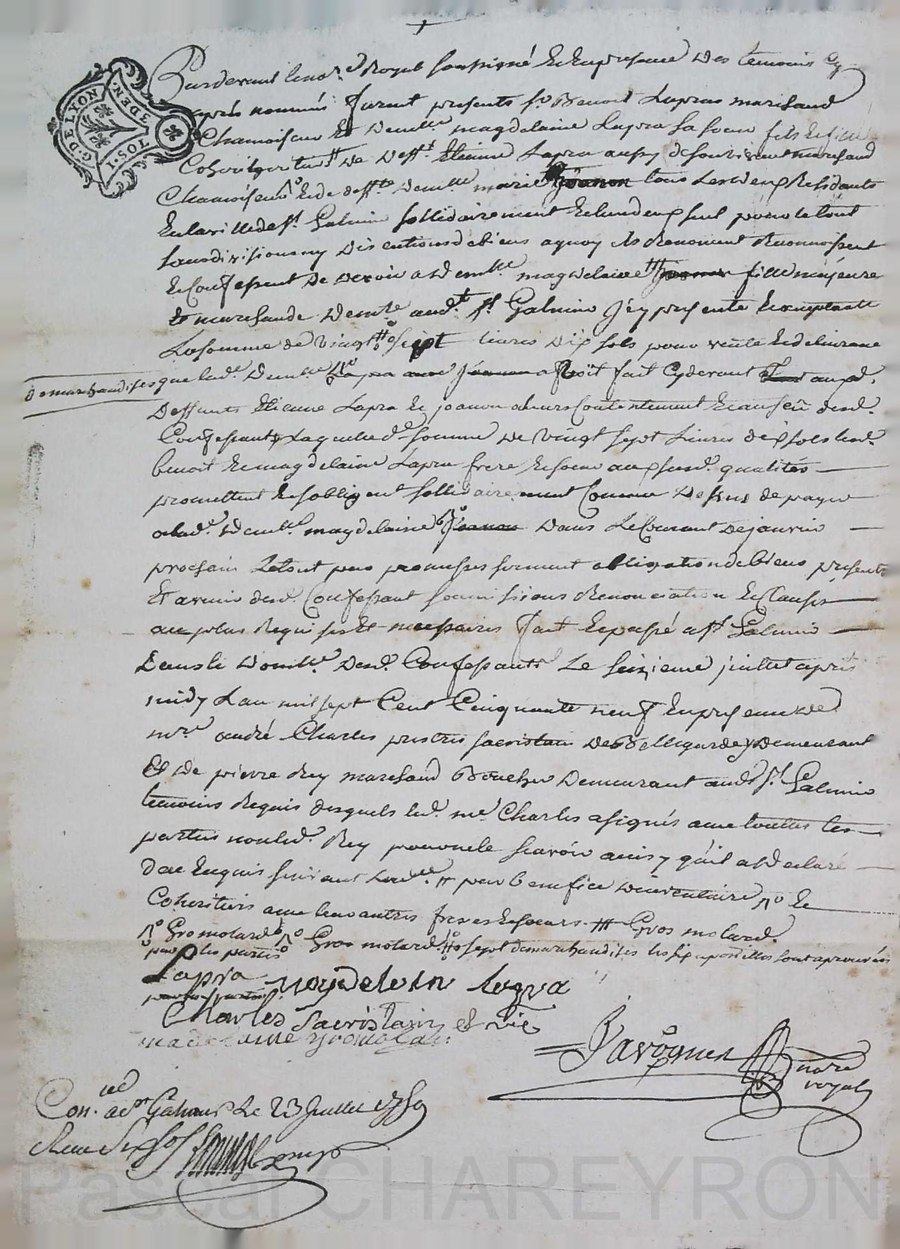 G. DE LYON
1. SOL
3. DEN
Pardevant le nore. Royal soussigné et en presence des temoins cy
apres nommés furent presents sr Benoit Lapras marchand
Chamoiseur et demelle magdelaine Lapra sa soeur fils et fille
Cohéritiers de deft. Etienne Lapra aussy de son vivant marchand
Chamoiseur et de deffte demelle marie Joanon tous les deux Residants
en la ville de st. Galmier sollidairement et lun deux seul pour le tout
sans division ny discutions de biens a quoy ils Renoncent Reconnoissent
et Confessent de devoir a demelle magdelaine Joanon fille majeure
et marchande demte. audt. st. Galmier icy presente et acceptante
La somme de vingt sept livres dix sols pour vente et delivrance
de marchandises que lad. demelle avoit fait cydevant aud.
Deffunts Etienne Lapra et joanon a leurs Contentement et ainsi desd.
Confessants Laquelle de. somme de vingt sept Livres dix sols led.
benoit et magdelaine Lapra frere et soeur aux susd. qualités
promettent et sobligent sollidairement Comme dessus de payer
a lad. demelle. magdelaine Joanon dans Le Courant de janvier
prochain Le tout par promesses serment obligation de biens presents
Et avenir desd. Confessant soumissions Renonciation et Clauses
au plus Requises Et necessaires fait et passé a st. Galmier
dans le domlle. desd. Confessants Le seizieme juillet apres
midy Lan mil sept Cent Cinquante neuf en presence de
mre. andré Charles prestre sacristain de Bellegarde y demeurant
Et de pierre Rey marchand Boucher Demeurant aud. st. Galmier
temoins Requis desquels led. mre Charles a signés avec touttes les
parties non led. Rey pour ne le scavoir ainsy qu'il a declaré
de ce Enquis suivant Lord. # par benefice dinventaire, no et
Coheritiers avec leurs autres freres et soeurs # Gros molard.
no Gromolard no Gros molard. # sept de marchandises les six apostilles sont aprouvées
par les parties
Lapra magdelein lapra
Charles Sacristain et vic
madelaine gromolard
Javogues nore royal
Con.lé a st Galmier Le 23 Juillet 1759
Reçu six sols
Pascal CHAREYRON